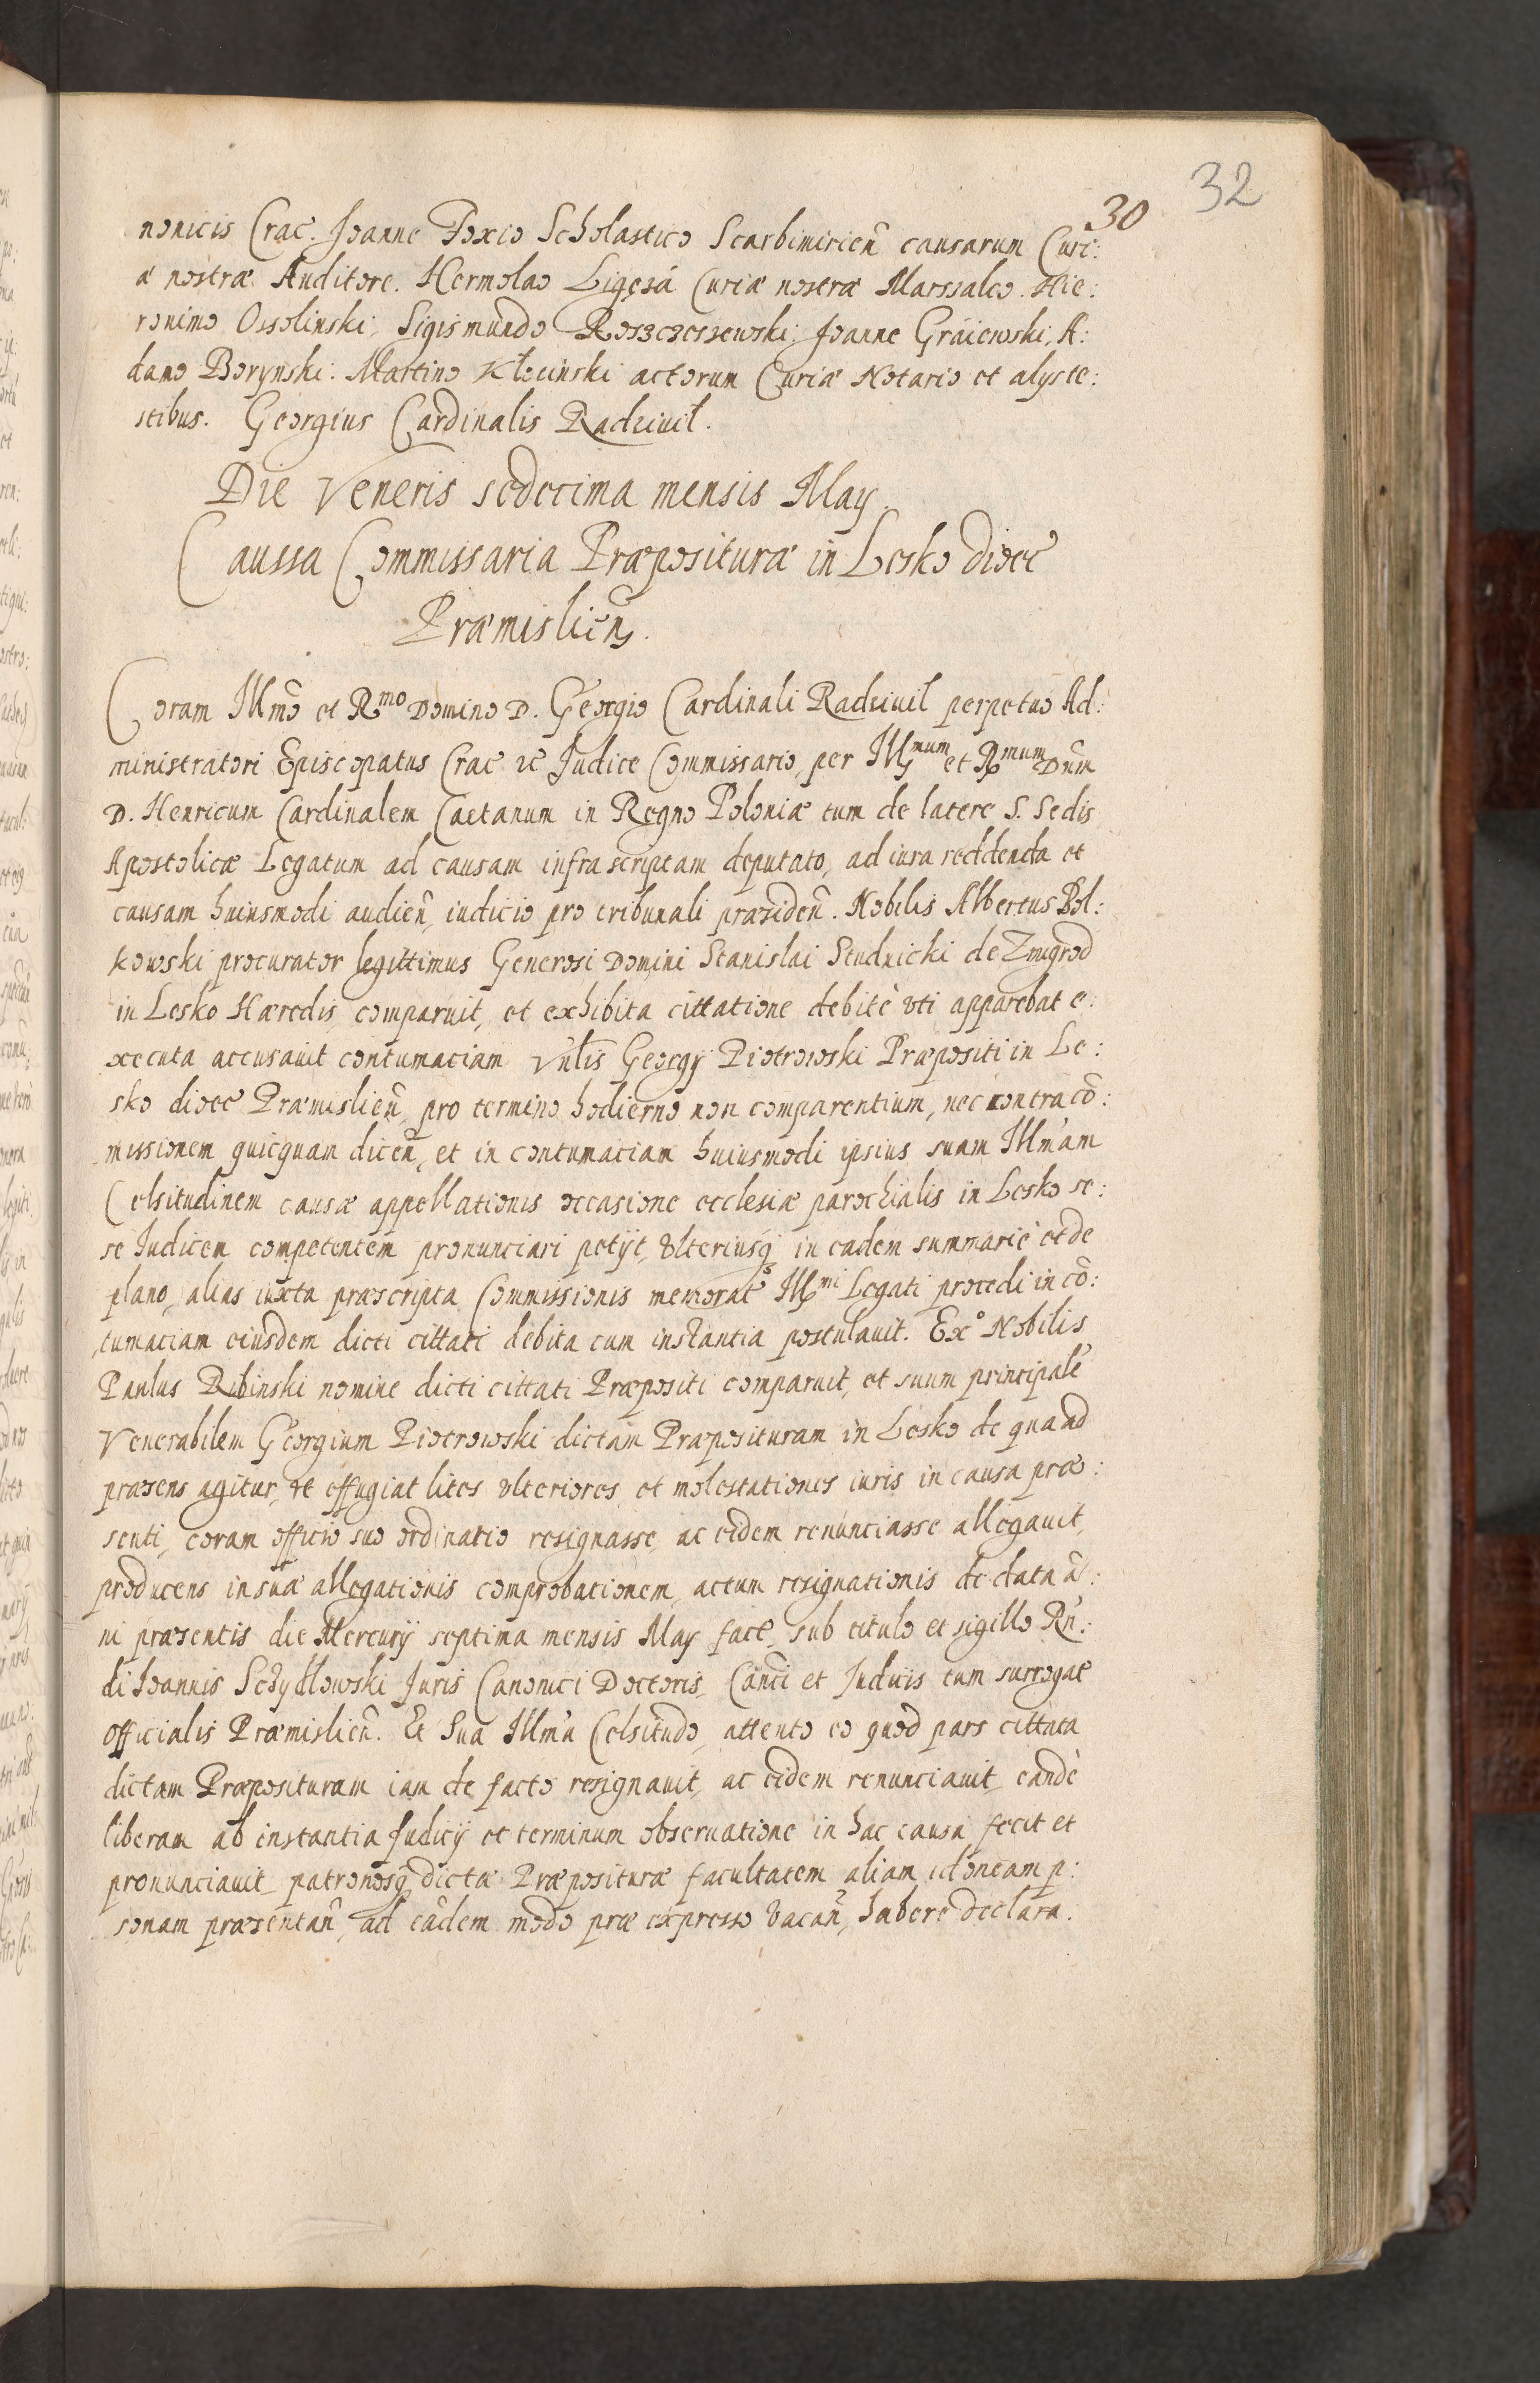 32
30
nonicis Crac. Joanne Foxio Scholastico Scarbimirien̄ causarum Curi:
æ nostræ Auditore. Hermolao Ligęzá Curiæ nostræ Marssalco. Hie:
ronimo Ossolinski, Sigismundo Roszczessewski: Joanne Gráiewski, A:
damo Borynski: Martino Kłocinski actorum Curiæ Notario et alys te:
stibus. Georgius Cardinalis Radziuił.
Die Veneris sedecima mensis May.
Caussa Commissaria Præposituræ in Lesko dioec̄
Præmislien̄.
Coram Illmō et Rmo Domino D. Georgio Cardinali Radziuil perpetuo Ad:
ministratori Episcopatus Crac̄ ꝛc Judice Commissario, per Illmum et Rmum Dnm̄
D. Henricum Cardinalem Caetanum in Regno Poloniæ tum de latere S. Sedis
Apostolicæ Legatum ad causam infrascriptam deputato, ad iura reddenda et
causam huiusmodi audien̄, iudicio pro tribunali præsiden̄. Nobilis Albertus Bol:
kowski procurator legittimus Generosi Domini Stanislai Studnicki de Zmigrod
in Lesko Hæredis, comparuit, et exhibita cittatione debitè vti apparebat e:
xecuta accusauit contumaciam Vnlis Georgÿ Piotrowski Præpositi in Le:
sko dioec̄ Præmislien̄, pro termino hodierno non comparentium, nec contra cō:
missionem quicquam dicen̄, et in contumaciam huiusmodi ipsius suam Illmam
Celsitudinem causæ appellationis occasione ecclesiæ parochialis in Lesko se:
se Judicem competentem pronunciari petÿt, vlteriusq̧ in eadem summariè et de
plano, alias iuxta præscripta Commissionis memorat̄ Illmi Legati procedi in cō:
tumaciam eiusdem dicti cittati debita cum instantia postulauit. Exo Nobilis
Paulus Ribinski nomine dicti cittati Præpositi comparuit, et suum principalē
Venerabilem Georgium Piotrowski dictam Præposituram in Lesko de qua ad
præsens agitur, vt effugiat lites vlteriores, et molestationes iuris in causa præ:
senti, coram officio suo ordinario resignasse, ac eidem renunciasse allegauit,
producens in suæ allegationis comprobationem, actum resignationis de data ā:
ni præsentis die Mercurÿ septima mensis May fact̄, sub titulo et sigillo Rn̄:
di Joannis Schydłowski Juris Canonici Doctoris, Canci et Judicis tum surrogat̄
officialis Præmislien̄. Et Sua Illma Celsitudo, attento eo quod pars cittata
dictam Præposituram iam de facto resignauit, ac eidem renunciauit, eandē
liberam ab instantia Judicÿ et terminum obseruatione in hac causa fecit et
pronunciauit, patronosq̧ dictæ Præposituræ facultatem aliam idoneam p:
sonam præsentan̄, ad eādem modo præ expresso vacan̄, habere declara.